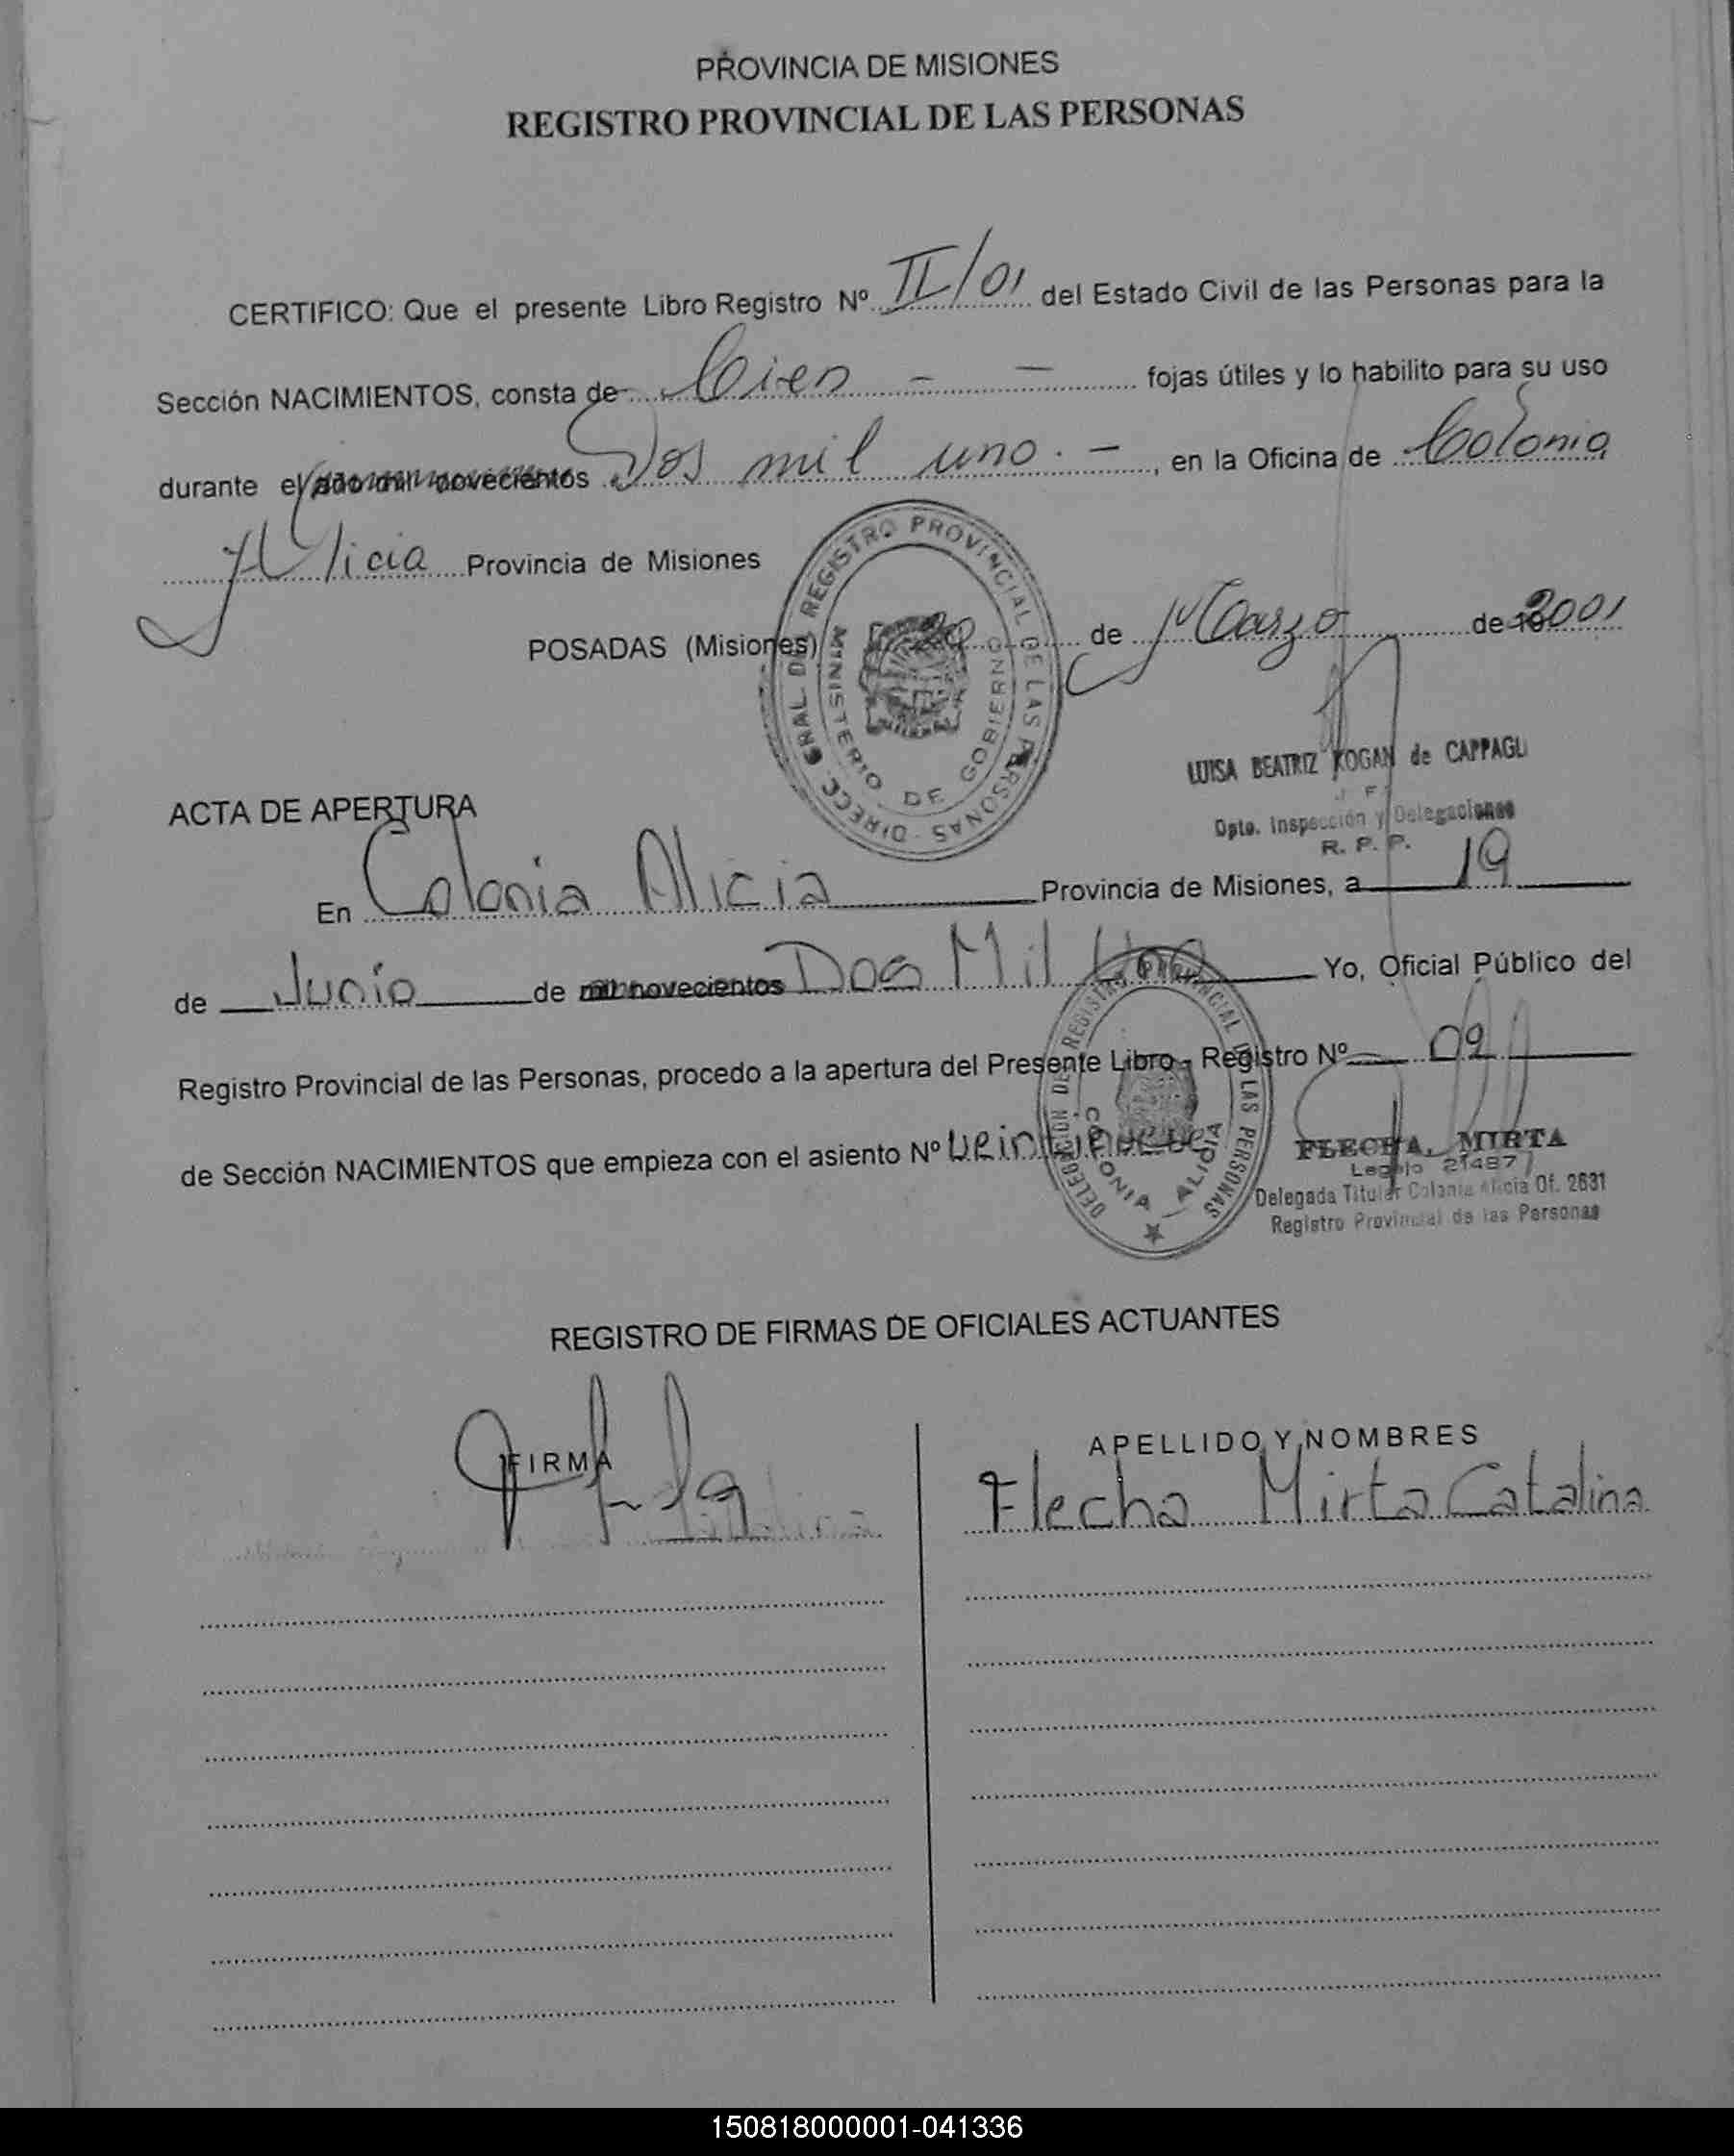 PROVINCIA DE MISIONES
REGISTRO PROVINCIAL DE LAS PERSONAS
CERTIFICO: Que el presente Libro Registro Nº II/01 del Estado Civil de las Personas para la
Sección NACIMIENTOS, consta de Cien - - fojas útiles y lo habilito para su uso
durante el año mil novecientos Dos mil uno. -, en la Oficina de Colonia
Alicia Provincia de Misiones
POSADAS (Misiones) 20 de Marzo de 2001
DIRECC. GRAL. DEL REGISTRO PROVINCIAL DE LAS PERSONAS
MINISTERIO DE GOBIERNO
LUISA BEATRIZ KOGAN de CAPPAGLI
Dpto. Inspección y Delegaciones
R. P. P.
ACTA DE APERTURA
En Colonia Alicia Provincia de Misiones, a 19
de Junio de mil novecientos Dos Mil Uno Yo, Oficial Público del
Registro Provincial de las Personas, procedo a la apertura del Presente Libro - Registro Nº 09
de Sección NACIMIENTOS que empieza con el asiento Nº veintinueve
DELEGACION DEL REGISTRO PROVINCIAL DE LAS PERSONAS
COLONIA ALICIA
FLECHA, MIRTA
Legajo 21487
Delegada Titular Colonia Alicia Of. 2631
Registro Provincial de las Personas
REGISTRO DE FIRMAS DE OFICIALES ACTUANTES
FIRMA
APELLIDO Y NOMBRES
Flecha Mirta Catalina
150818000001-041336